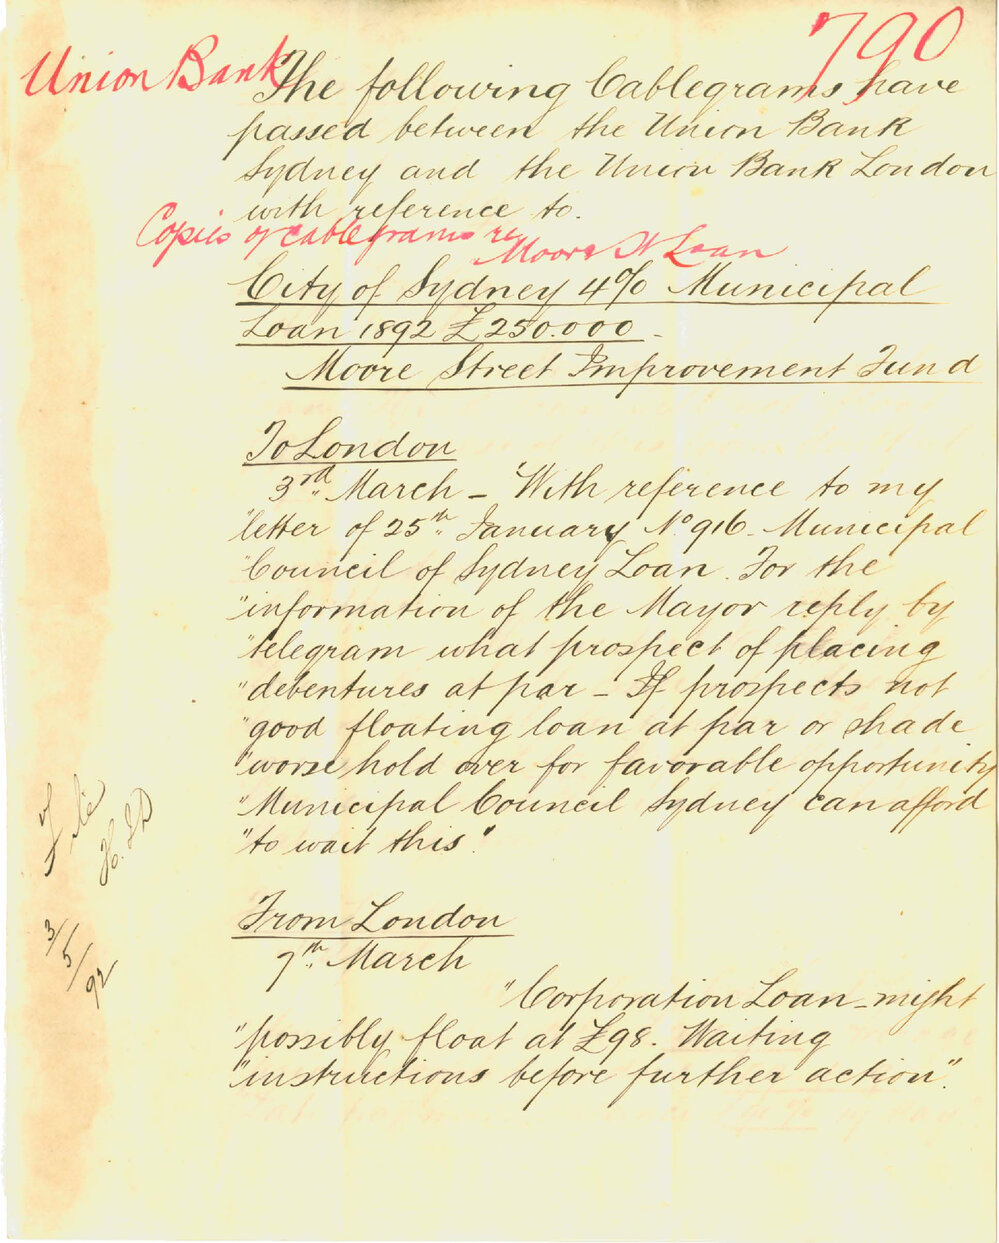 790
Union Bank
The following Cablegrams have
passed between the Union Bank
Sydney and the Union Bank London
with reference to.
Copies of cablegrams re
Moore St Loan
City of Sydney 4% Municipal
Loan 1892 £250.000 -
Moore Street Improvement Fund
To London
3rd. March - "With reference to my
"letter of 25th. January No. 916. Municipal
"Council of Sydney Loan. For the
"information of the Mayor reply by
"telegram what prospect of placing
"debentures at par - If prospects not
"good floating loan at par or shade
"worse hold over for favorable opportunity
"Municipal Council Sydney can afford
"to wait this".
From London
7th. March
"Corporation Loan - might
"possibly float at £98. Waiting
"instructions before further action".
File
3/5/92